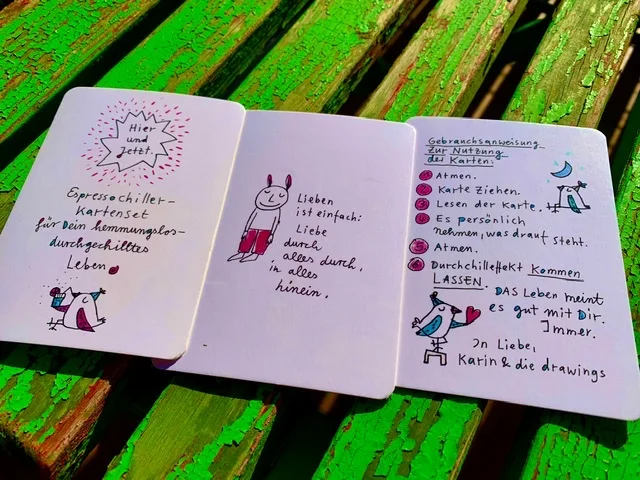 Hier
und
Jetzt.
Espressochiller-
Kartenset
für Dein hemmungslos-
durchgechilltes
Leben
Lieben
ist einfach:
Liebe
durch
alles durch,
in alles
hinein.
Gebrauchsanweisung
zur Nutzung
der Karten:
1 Atmen.
2 Karte ziehen.
3 Lesen der Karte.
4 Es persönlich
nehmen, was drauf steht.
5 Atmen.
6 Durchchilleffekt kommen
LASSEN. DAS Leben meint
es gut mit Dir.
Immer.
In Liebe,
Karin & die drawings